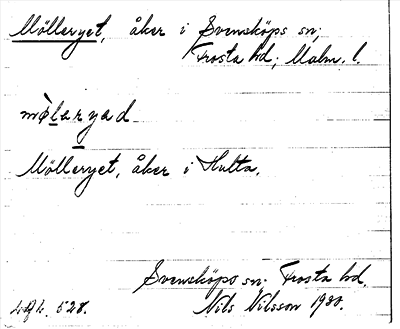 Mölleryet, åker i Svensköps sn;
Frosta hd; Malm. l.
mølaryad
Mölleryet, åker i Hulta.
Svensköps sn. Frosta hd.
528. Nils Nilsson 1930.